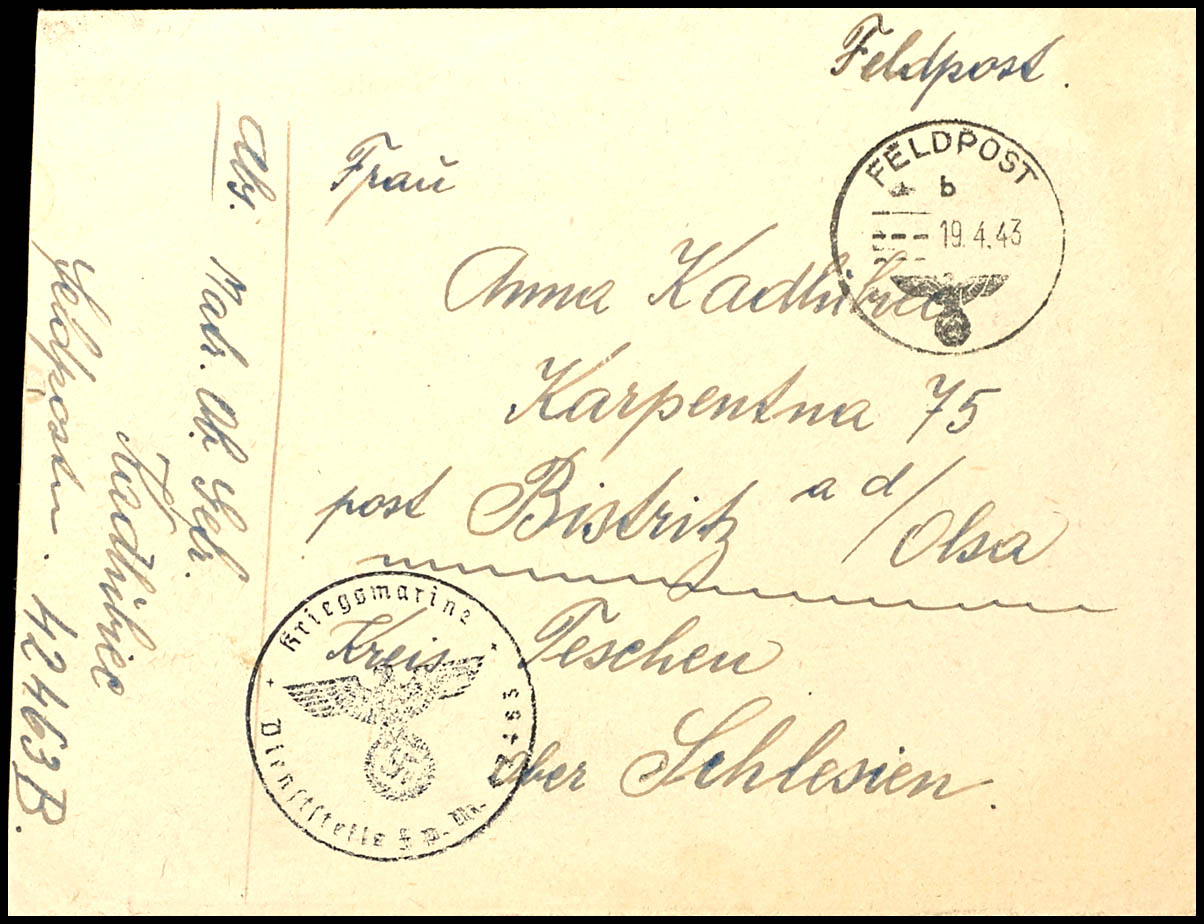 Feldpost.
FELDPOST
b
19.4.43
Frau
Anna Kadlubiec
Karpentna 75
post Bistritz a d/Olsa
Kreis Teschen
Ober Schlesien.
Kriegsmarine
Dienststelle F.P. Nr. 42463
Abs. Matr. Ob. Gefr.
Kadlubiec
Feldpostn. 42463B.